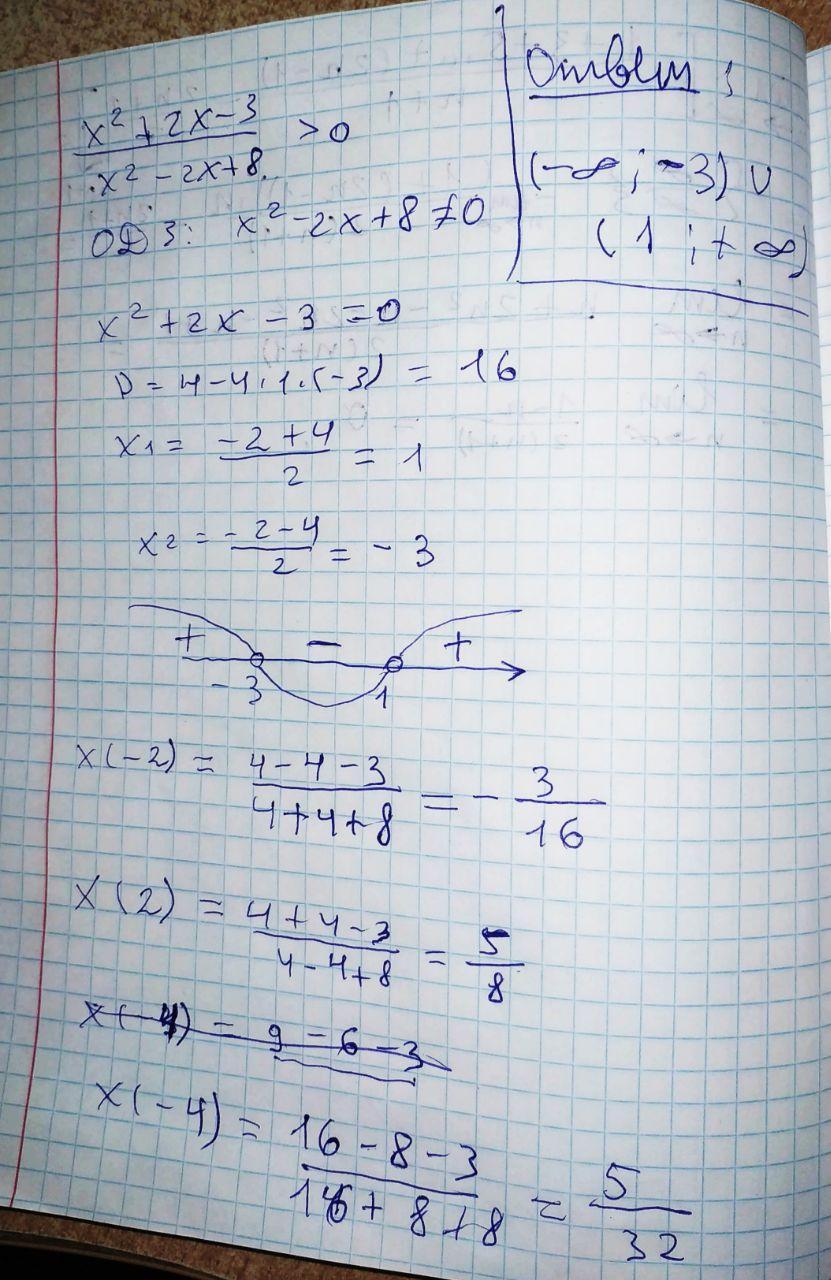 x² + 2x - 3 / x² - 2x + 8 > 0
ОДЗ: x² - 2x + 8 ≠ 0
x² + 2x - 3 = 0
D = 4 - 4 · 1 · (-3) = 16
x1 = -2 + 4 / 2 = 1
x2 = -2 - 4 / 2 = -3
+ - +
-3 1
x(-2) = 4 - 4 - 3 / 4 + 4 + 8 = - 3 / 16
x(2) = 4 + 4 - 3 / 4 - 4 + 8 = 5 / 8
x(-4) = 9 - 6 - 3
x(-4) = 16 - 8 - 3 / 16 + 8 + 8 = 5 / 32
Ответ:
(-∞; -3) ∪
(1; + ∞)